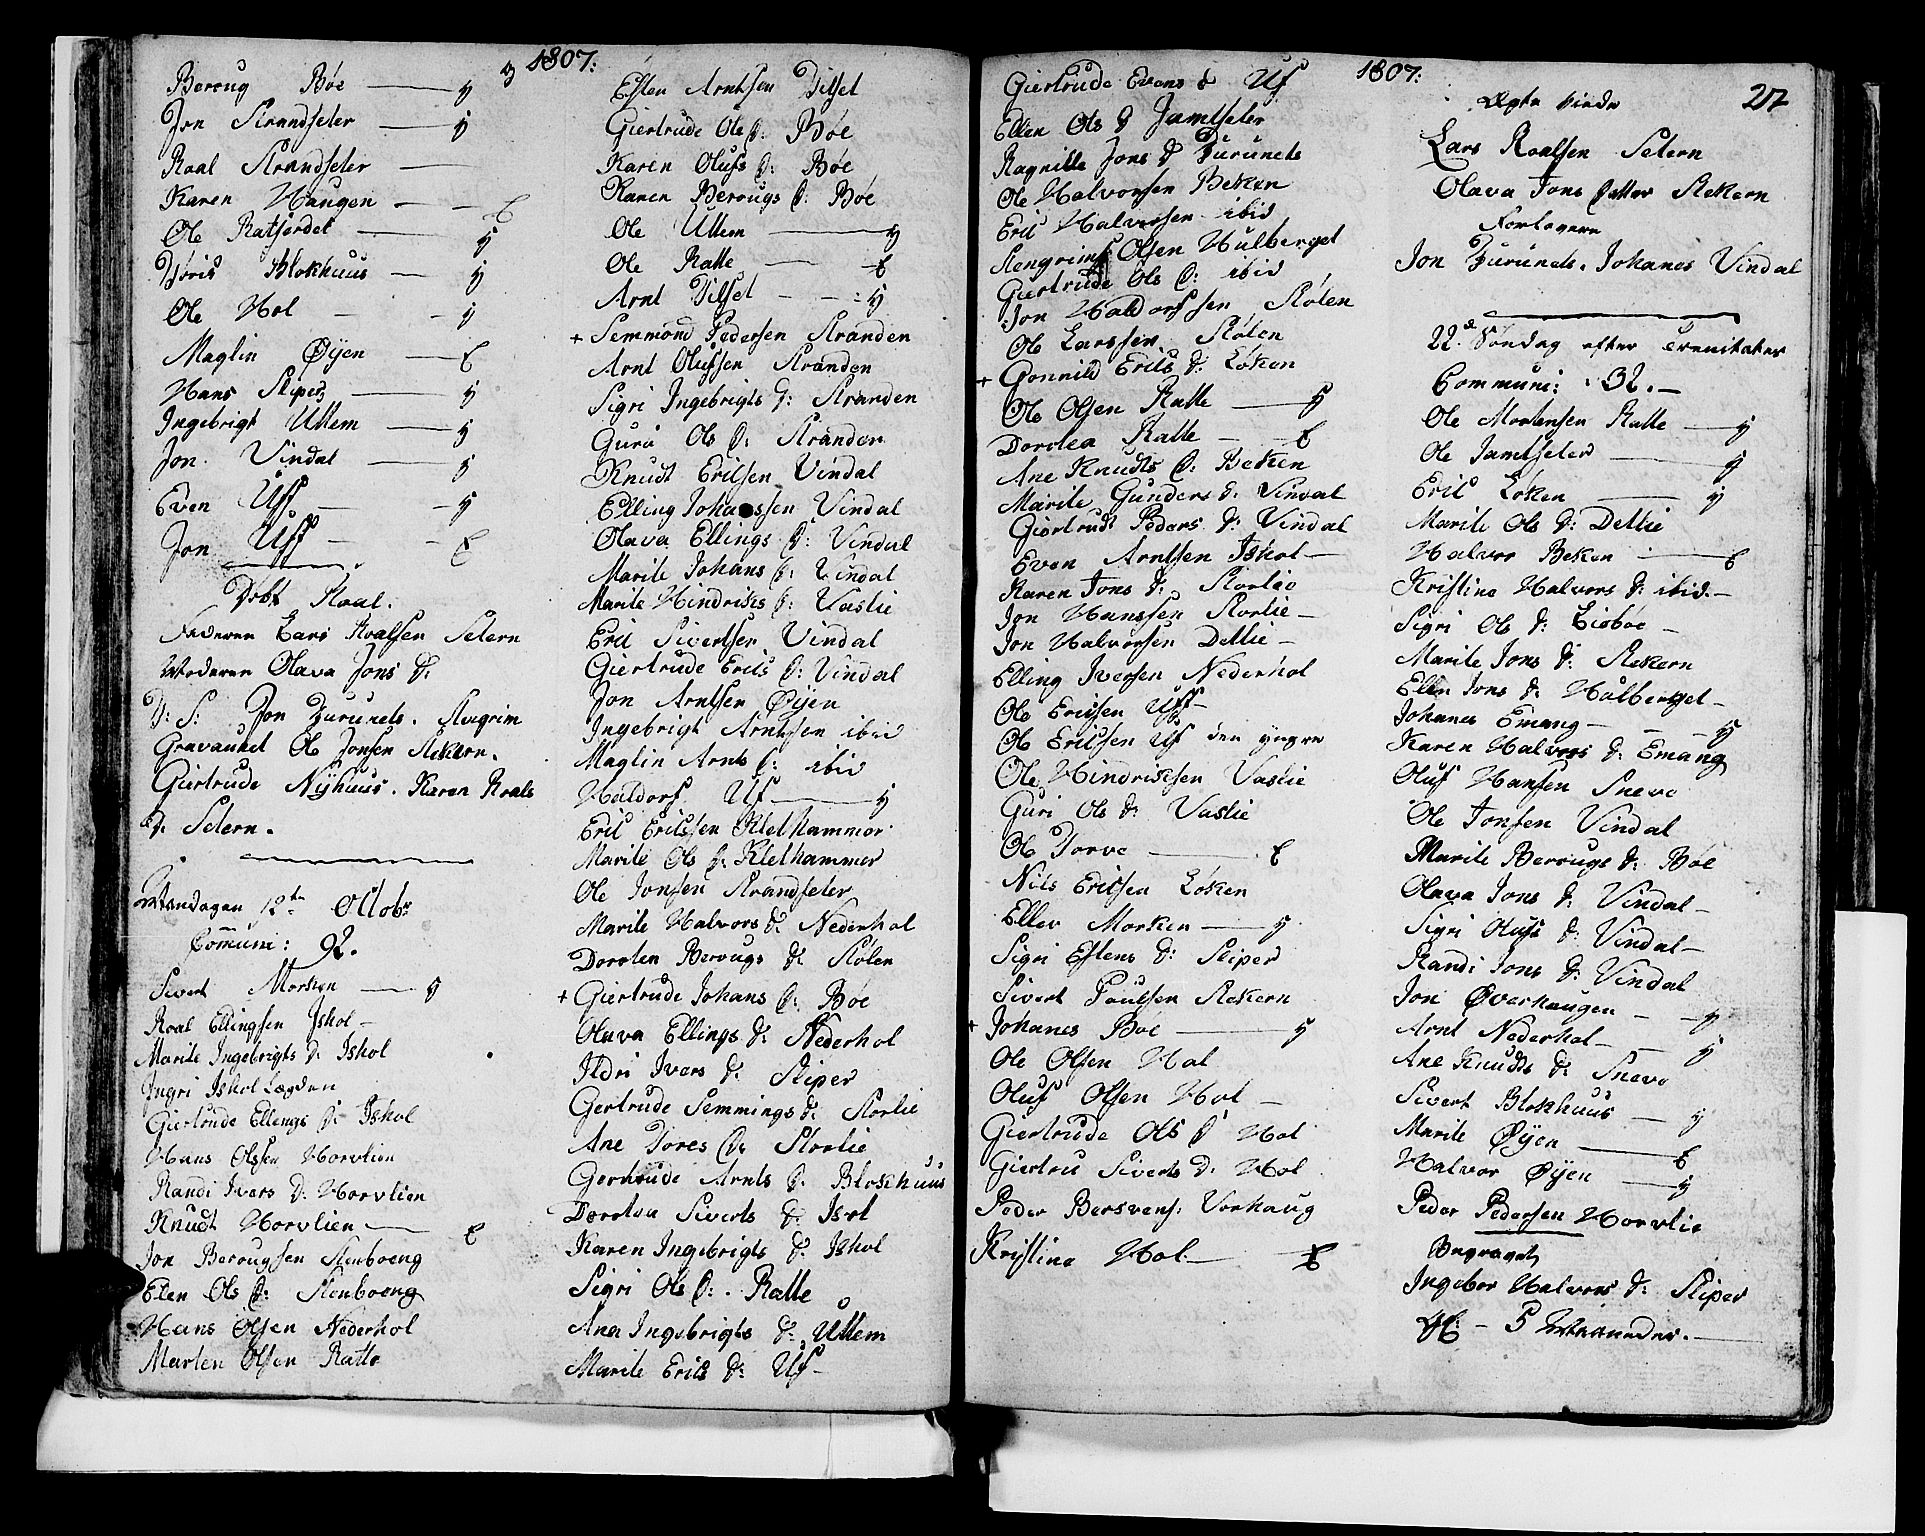 1807:
Beroug Bøe — y
Jon Strandseter — y
Roal Strandseter —
Karen Haugen — E
Ole Ratsfordet — y
Joris Blokhuus — y
Ole Hol — y
Maglin Øyen — E
Hans Sliper — y
Ingebrigt Uttem — y
Jon Vindal — y
Even Uff — y
Jon Uff — E
Døbt Roal.
Faderen Lars Roalsen Setern
Moderen Olava Jons d:
D: S: Jon Furunets. Stengrim
Gravaunet Ole Jonsen Stekern.
Giertrude Nyhuus. Karen Roals
d. Setern.
Mandagen 12te Octobr
Com̅uni: 92.
Sivert Morken — y
Roal Ellingsen Ishol —
Marite Ingebrigts d: Ishol
Ingri Ishol Lægden
Giertrude Ellengs d: Ishol
Hans Olsen Horvlien
Randi Ivers D: Horvlien
Knudt Horvlien — E
Jon Berougsen Stenboeng
Elen Ols d: Stenboeng
Hans Olsen Nederhol
Marten Olsen Ratte
Esten Arntsen Tilset
Giertrude Ole d: Bøe
Karen Olufs d: Bøe
Karen Berougs d: Bøe
Ole Uttem — y
Ole Ratte — E
Arnt Tilset — y
+ Semmond Pedersen Stranden
Arnt Olufsen Stranden
Sigri Ingebrigts d: Stranden
Guru Ols d: Stranden
Knudt Erilsen Vindal
Elling Johansen Vindal
Olava Ellings d: Vindal
Marite Johans d: Vindal
Marite Hindriks d: Vaslie
Eril Sivertsen Vindal
Giertrude Erils d: Vindal
Jon Arntsen Øyen
Ingebrigt Arntsen ibid
Maglin Arnts d: ibid
Haldorf Uf — y
Eril Erilsen Klethammer
Marite Ols d: Klethammer
Ole Jonsen Strandseter
Marite Halvors d: Nederhol
Dorotea Berougs d: Stølen
+ Giertrude Johans d: Bøe
Olava Ellings d: Nederhol
Ildri Ivers d: Sliper
Gertrude Semmings d: Storlie
Ane Tores d: Storlie
Gertrude Arnts d. Blokhuus
Dorotea Siverts d: Isol
Karen Ingebrigts d: Ishol
Sigri Ols d: Ratte
Ane Ingebrigts d: Uttem
Marite Erils d: Uf —
1807:
Giertrude Evens d Uf
Ellen Ols d Jamtseter
Ragnilde Jons d Furunets
Ole Halvorsen Beken
Eril Halvorsen ibid
Stengrim Olsen Hulberget
Giertrude Ols d: ibid
Jon Haldorssen Stølen
Ole Larssen Stølen
+ Gonnild Erils d: Løken
Ole Olsen Ratte — y
Dorotea Ratte — E
Ane Knudts d: Beken
Marite Gunders d: Vindal
Giertrudt Peders d: Vindal
Even Arntsen Ishol —
Karen Jons d: Storlie
Jon Hanssen Storlie —
Jon Halvorsen Detlie —
Elling Iversen Nederhol
Ole Erilsen Uff —
Ole Erilsen Uf den yngre
Ole Hindriksen Vaslie
Guri Ols d: Vaslie
Ole Torve — E
Nils Erilsen Løken
Ellev Morken — y
Sigri Estens d: Sliper
Sivert Poulsen Stekern
+ Johanes Bøe — y
Ole Olsen Hol
Oluf Olsen Hol —
Giertrude Ols d Hol
Giertru Siverts d: Hol
Peder Bersvens. Vorhaug
Kristine Hol — E
1807:
217
Ægte viede
Lars Roalsen Setern
Olava Jons Datter Stekern
Forlovere
Jon Furunets. Johanes Vindal
22de Søndag efter Trenitates
Communi: 32. —
Ole Mortensen Ratte — y
Ole Jamtseter — y
Eril Løken — y
Marite Ols d: Detlie
Halvor Beken — E
Kristine Halvors d: ibid —
Sigri Ols d: Liebøe —
Marite Jons d: Stekern
Ellen Jons d: Hulberget —
Johanes Emang — y
Karen Halvors d: Emang
Oluf Hansen Sneve
Ole Jonsen Vindal
Marite Berougs d: Bøe
Olava Jons d: Vindal —
Sigri Olufs d: Vindal —
Randi Jons d: Vindal
Jon Øverhaugen — y
Arnt Nederhol — y
Ane Knudts d: Sneve
Sivert Blokhuus — y
Marite Øyen — E
Halvor Øyen — y
Peder Pedersen Horvlie
Begravet
Ingebor Halvors d: Sliper
— 5 Maaneder. —